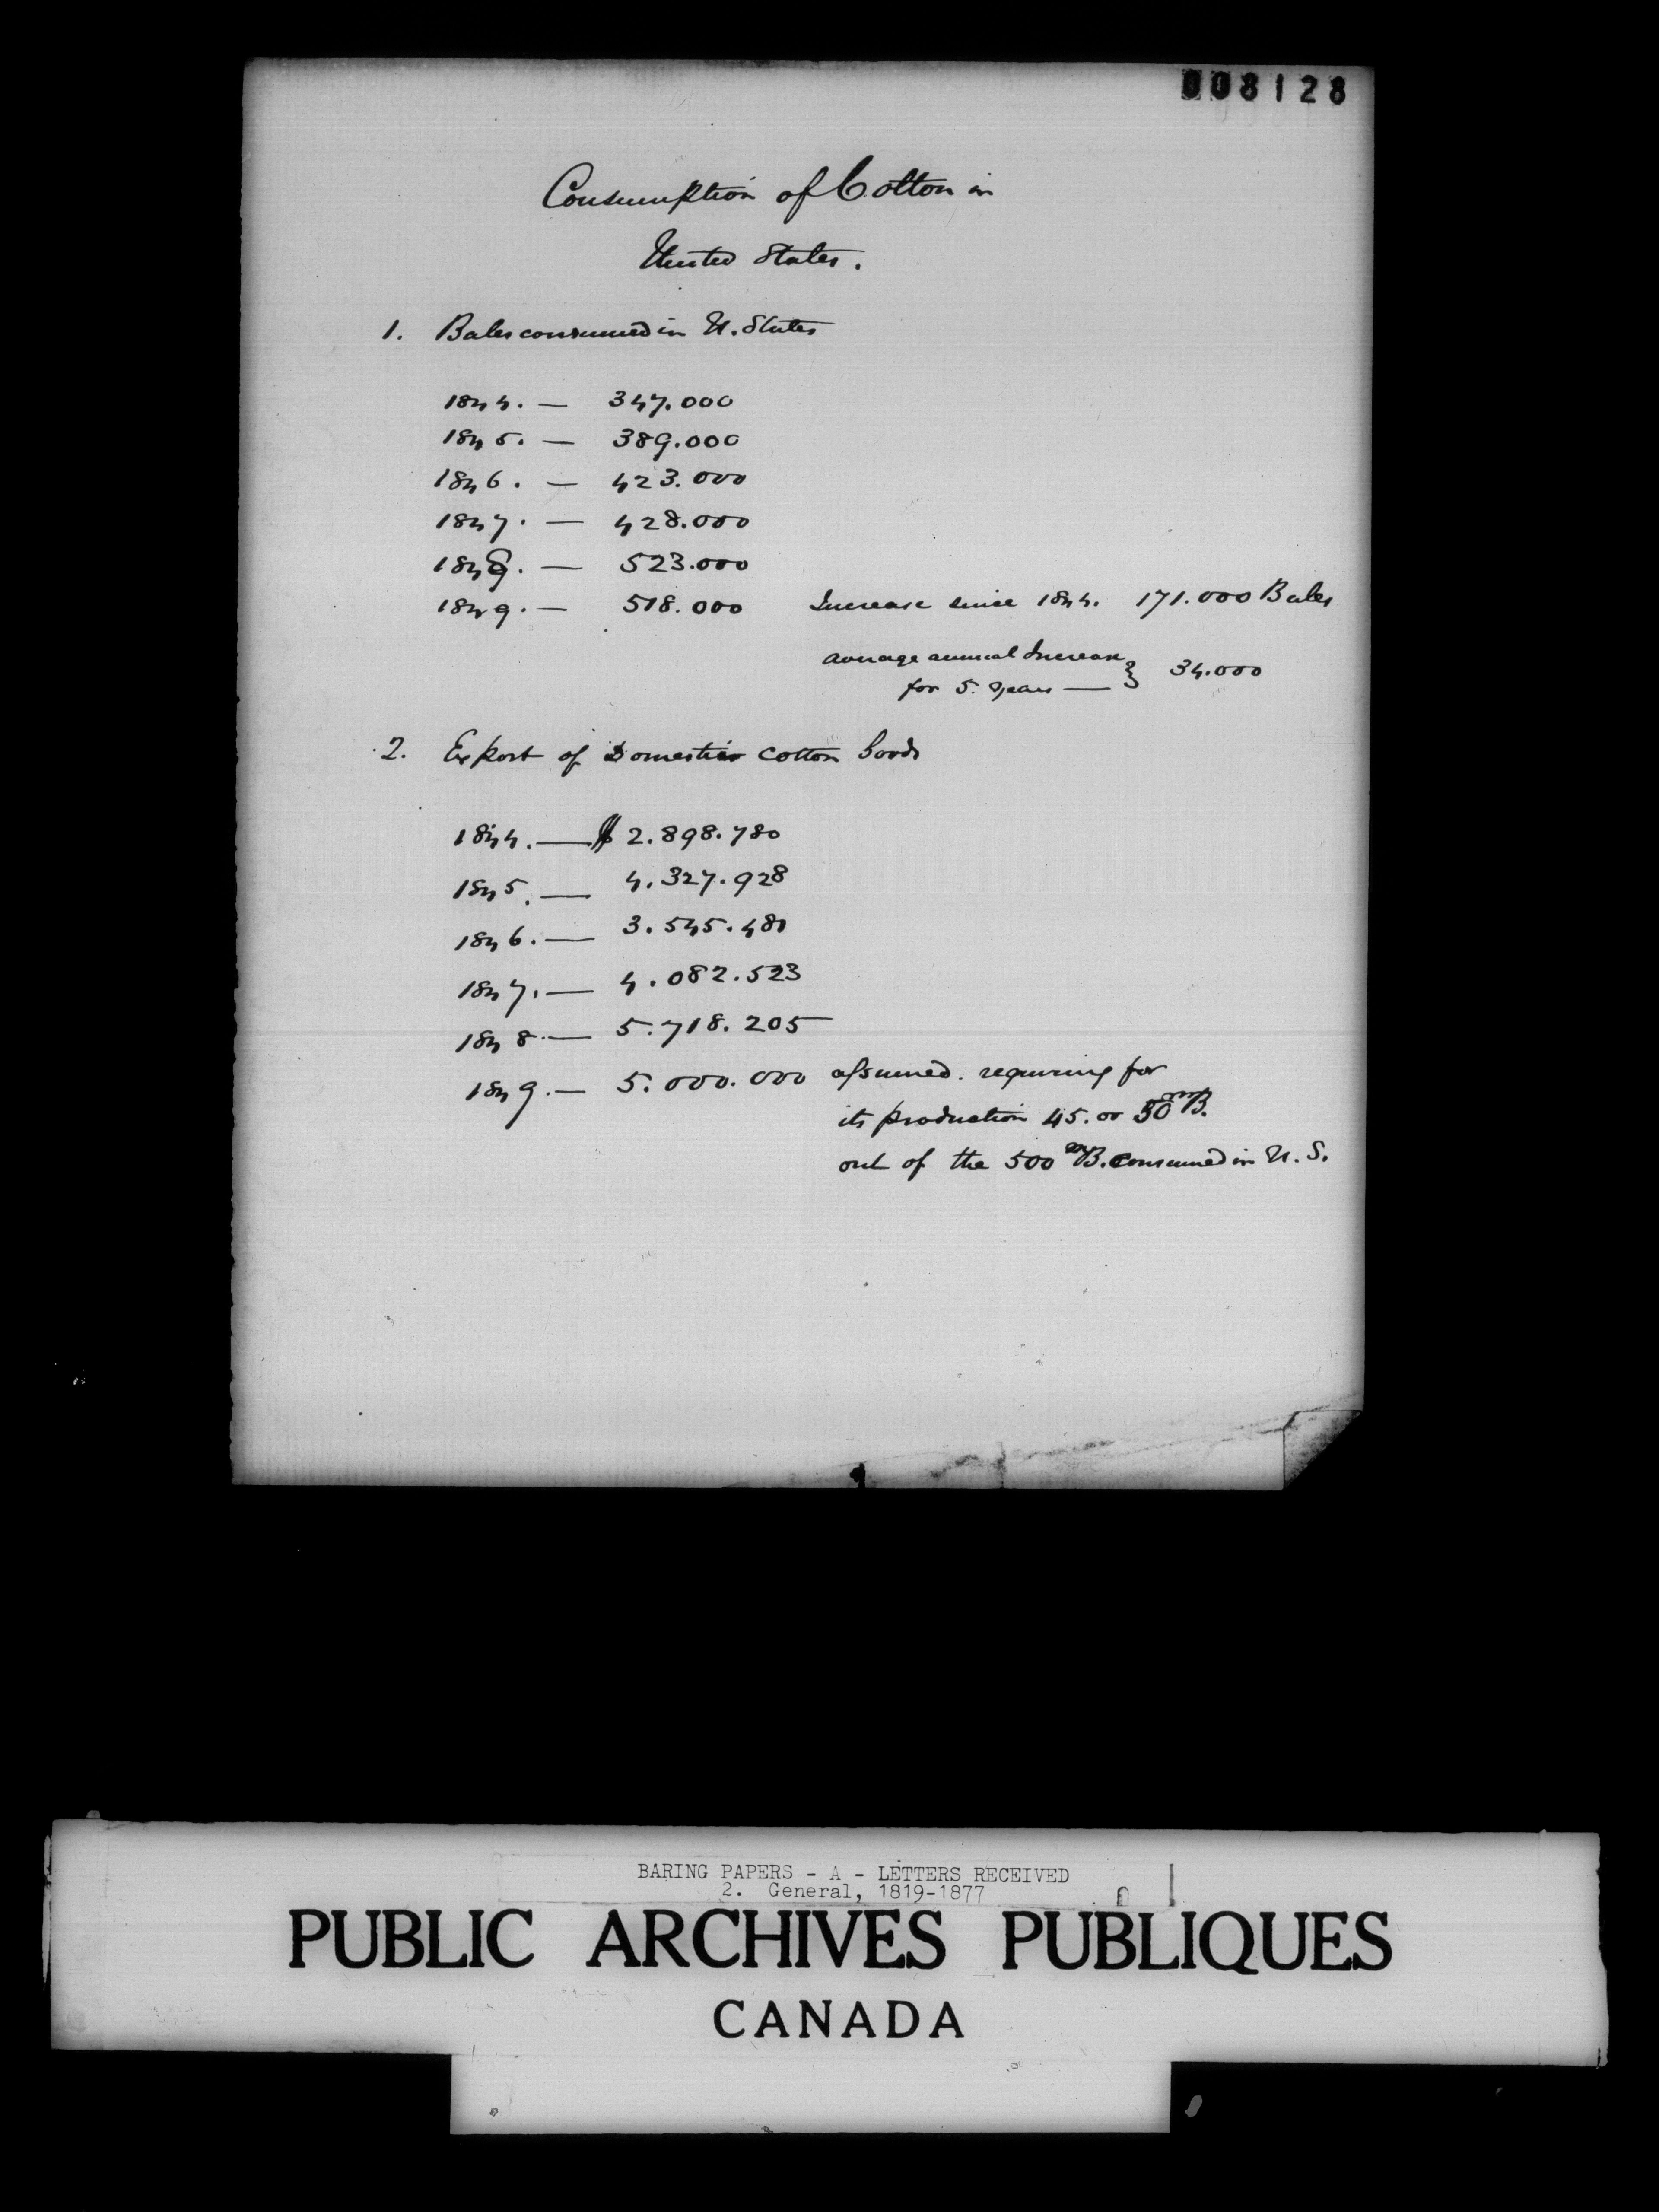 008128
Consumption of Cotton in
United States.
1. Bales consumed in U. States
1844. — 347.000
1845. — 389.000
1846. — 423.000
1847. — 428.000
1848. — 523.000
1849. — 518.000 Increase since 1844. 171.000 Bales
average annual Increase } 34.000
for 5. years —
2. Export of Domestic cotton Goods
1844. — $ 2.898.780
1845. — 4.327.928
1846. — 3.545.481
1847. — 4.082.523
1848. — 5.718.205
1849. — 5.000.000 assumed. requiring for
its production 45. or 50 m B.
out of the 500 m B. consumed in U. S.
BARING PAPERS - A - LETTERS RECEIVED
2. General, 1819-1877
PUBLIC ARCHIVES PUBLIQUES
CANADA